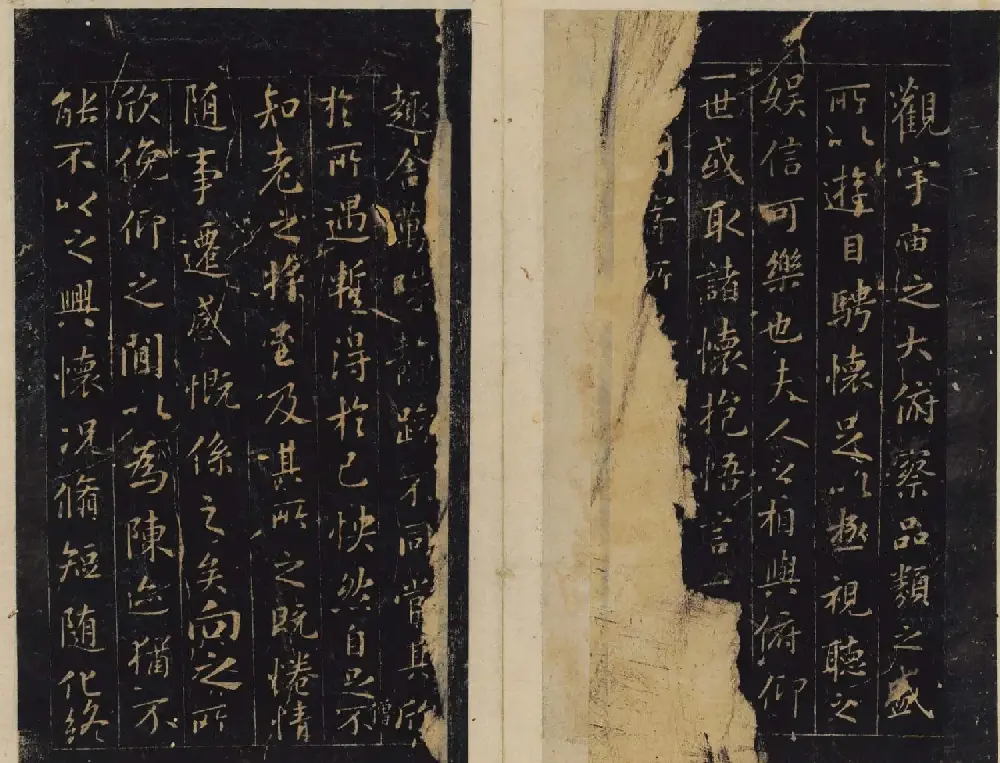 觀宇宙之大俯察品類之盛
所以遊目騁懷足以極視聽之
娛信可樂也夫人之相與俯仰
一世或取諸懷抱悟言一
寄所
趣舍萬殊靜躁不同當其欣
於所遇暫得於己怏然自足不
僧
知老之將至及其所之既惓情
隨事遷感慨係之矣向之所
欣俛仰之間以為陳迹猶不
能不以之興懷況脩短隨化終